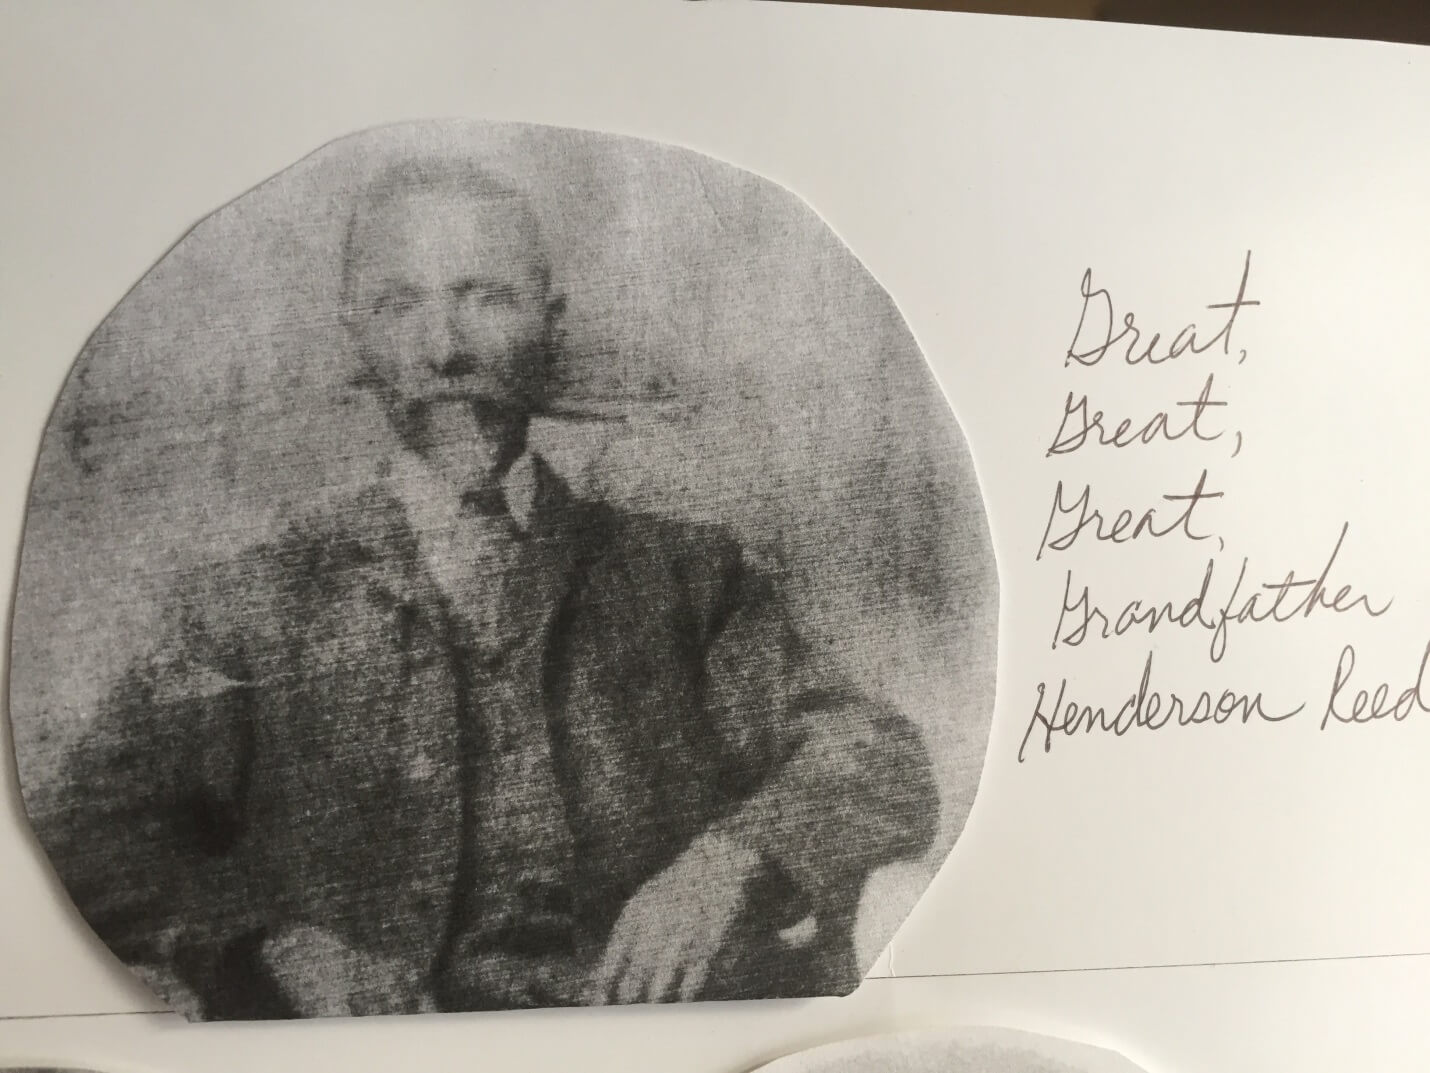 Great,
Great,
Great,
Grandfather
Henderson Reed